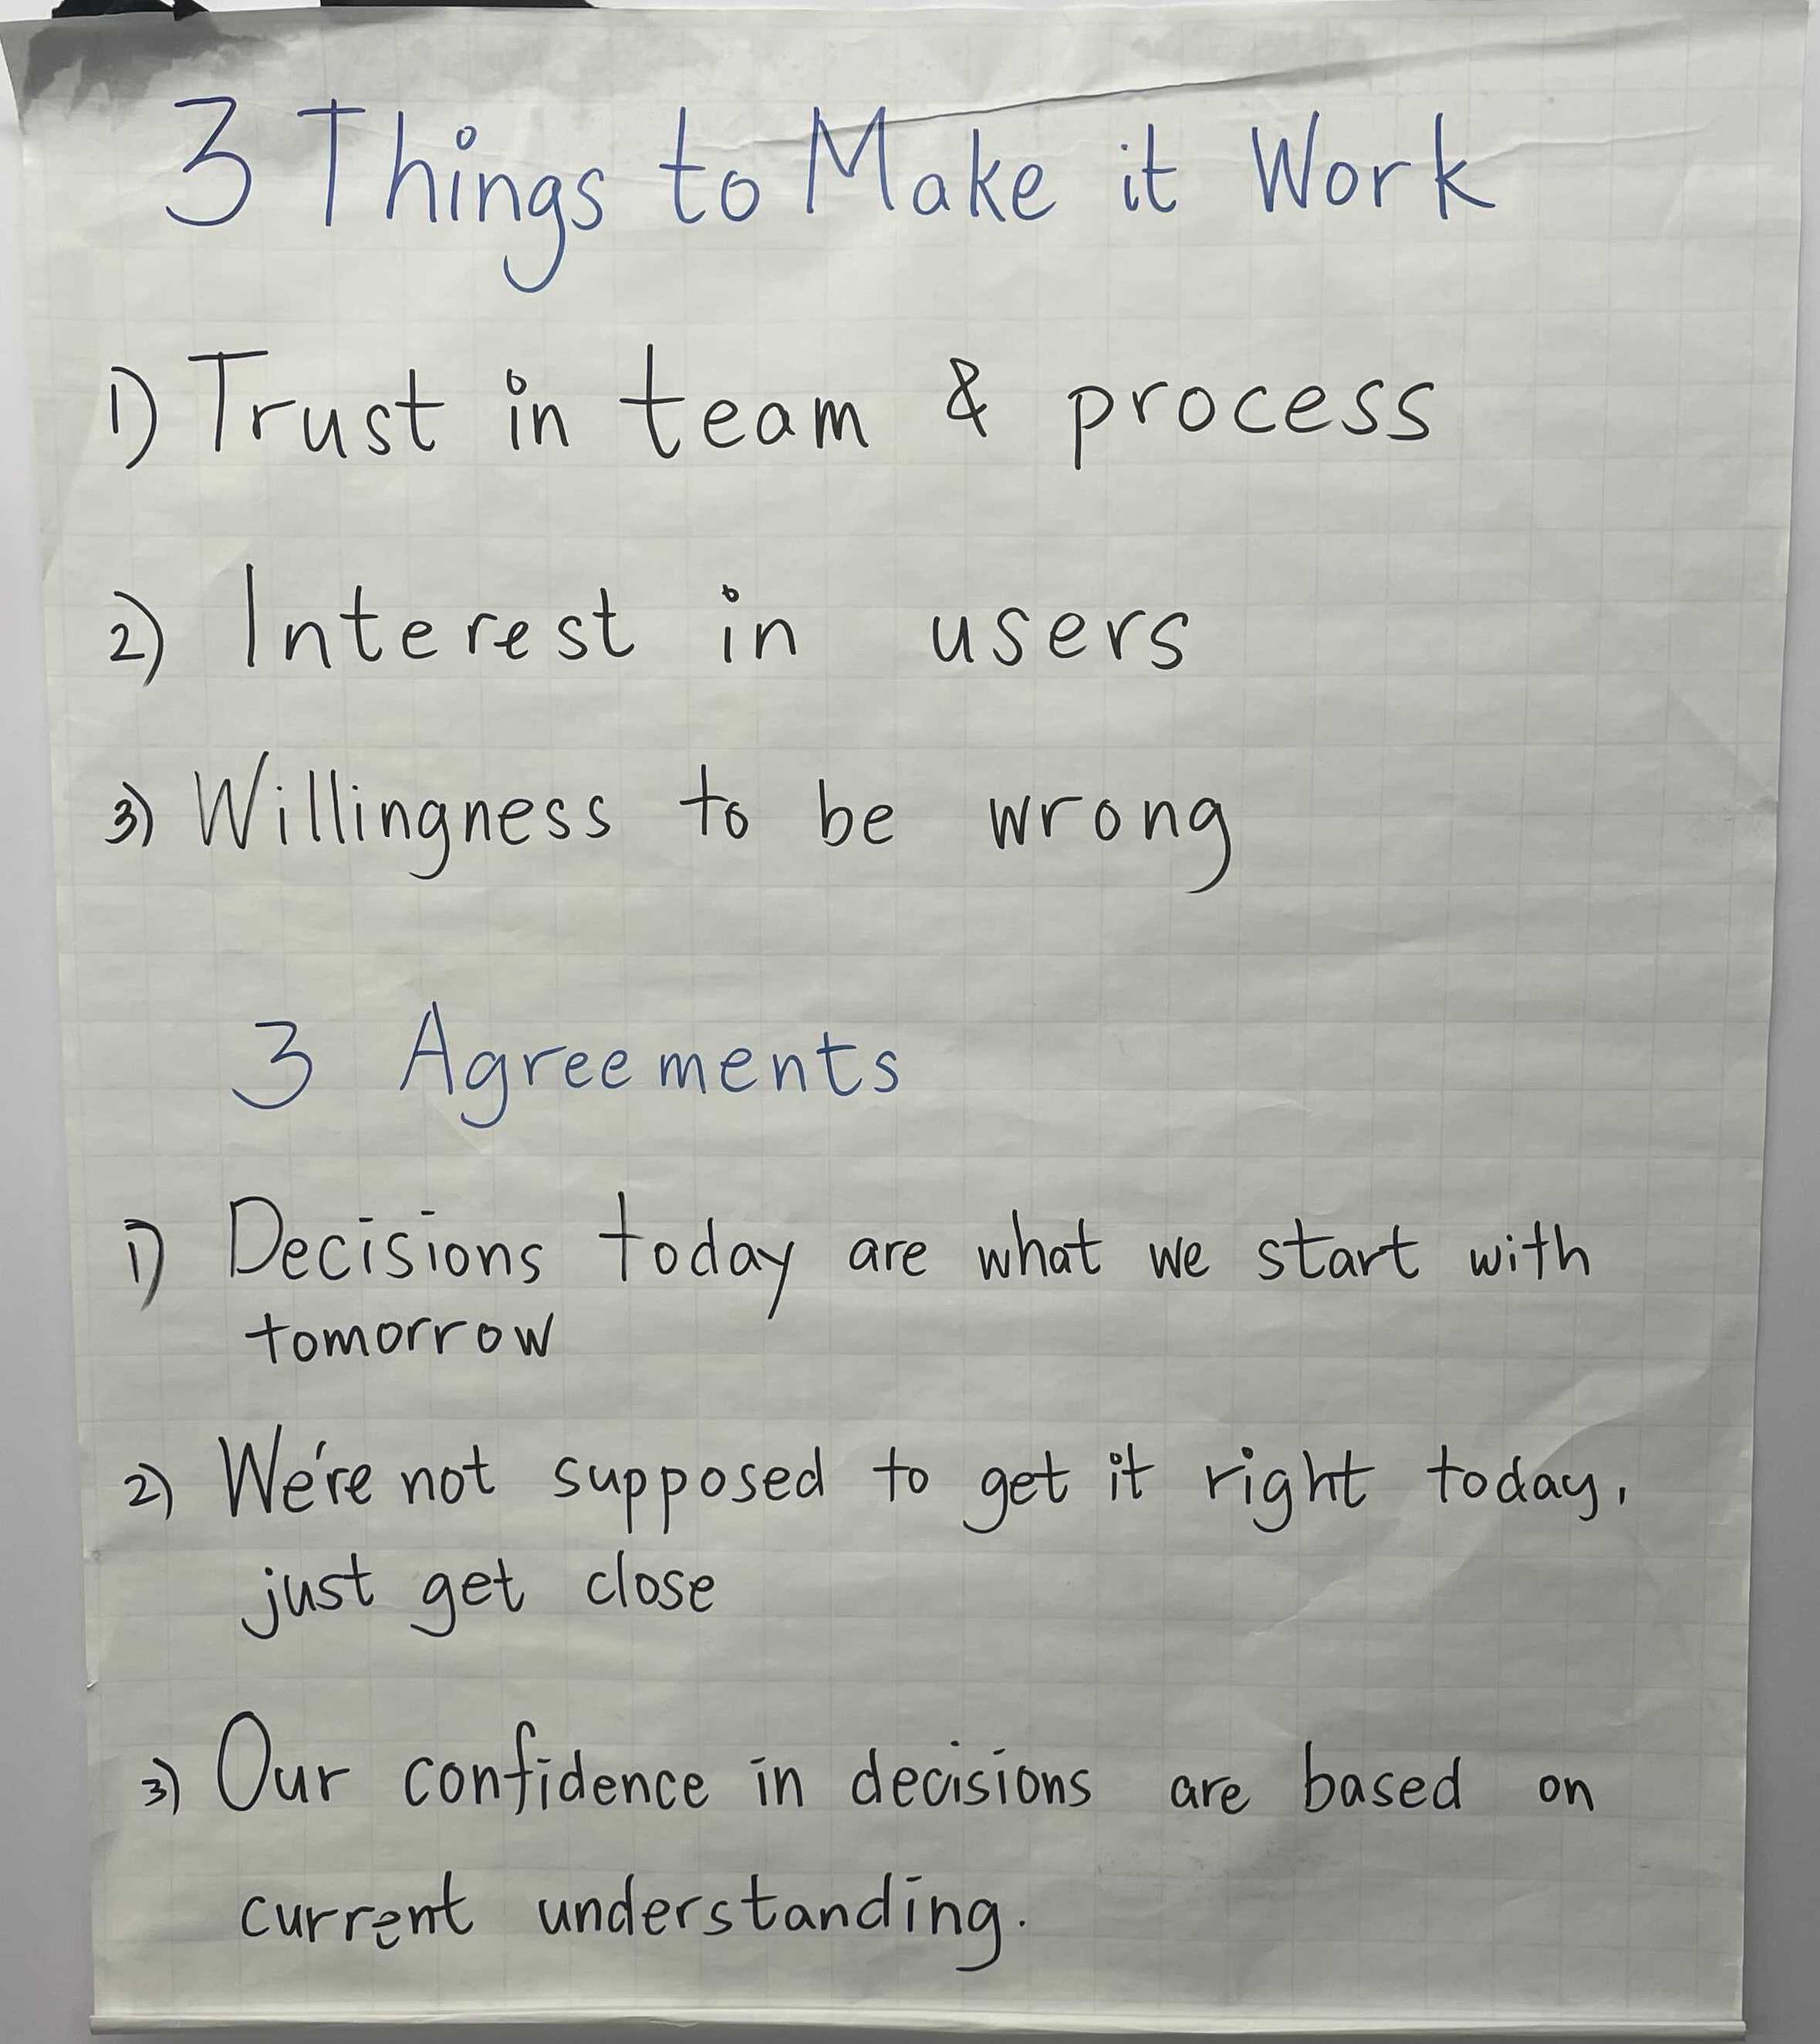 3 Things to Make it Work
1) Trust in team & process
2) Interest in users
3) Willingness to be wrong
3 Agreements
1) Decisions today are what we start with
tomorrow
2) We're not supposed to get it right today,
just get close
3) Our confidence in decisions are based on
current understanding.